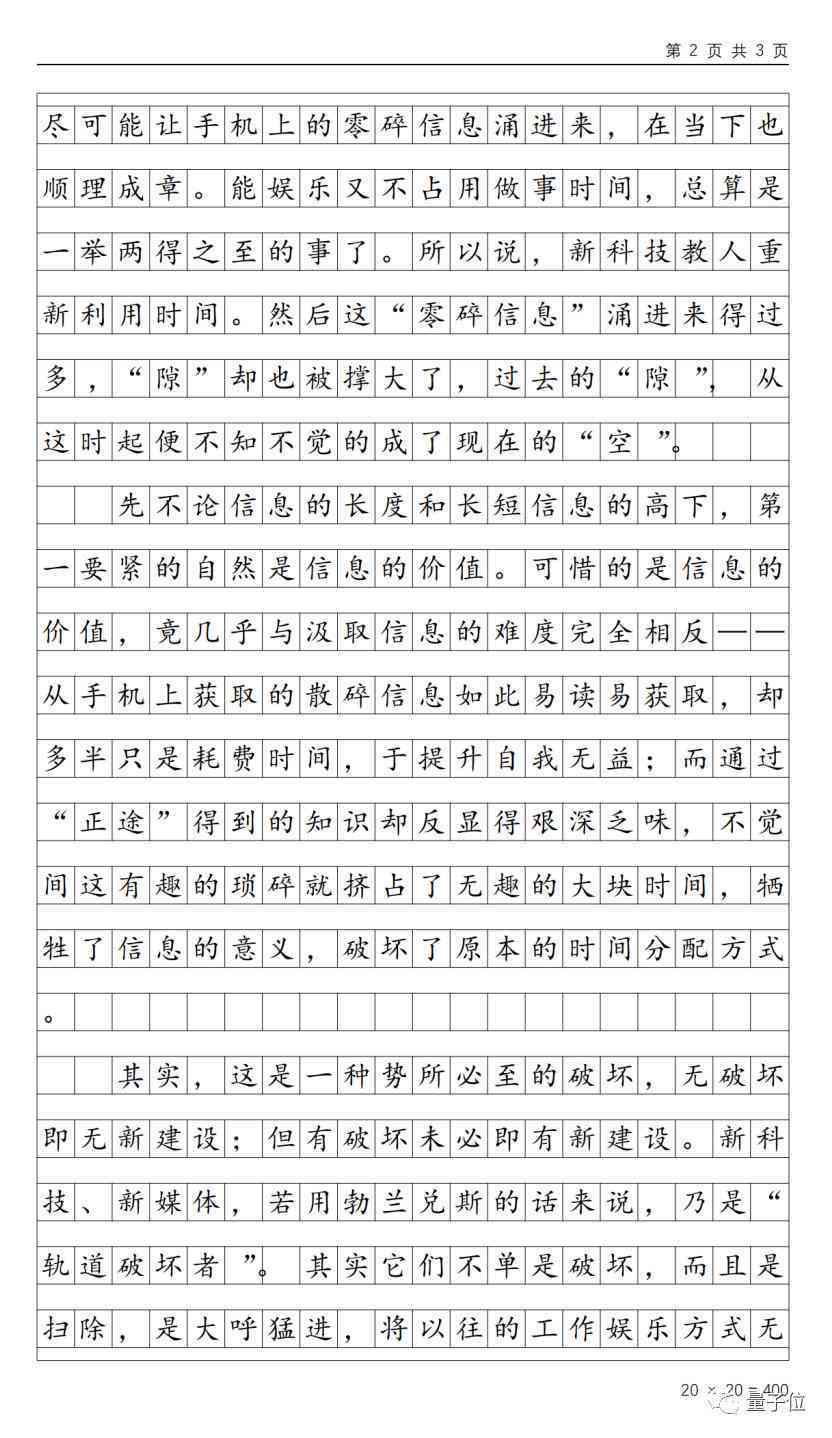 第 2 页 共 3 页
尽可能让手机上的零碎信息涌进来，在当下也
顺理成章。能娱乐又不占用做事时间，总算是
一举两得之至的事了。所以说，新科技教人重
新利用时间。然后这“零碎信息”涌进来得过
多，“隙”却也被撑大了，过去的“隙”，从
这时起便不知不觉的成了现在的“空”。
先不论信息的长度和长短信息的高下，第
一要紧的自然是信息的价值。可惜的是信息的
价值，竟几乎与汲取信息的难度完全相反——
从手机上获取的散碎信息如此易读易获取，却
多半只是耗费时间，于提升自我无益；而通过
“正途”得到的知识却反显得艰深乏味，不觉
间这有趣的琐碎就挤占了无趣的大块时间，牺
牲了信息的意义，破坏了原本的时间分配方式
。
其实，这是一种势所必至的破坏，无破坏
即无新建设；但有破坏未必即有新建设。新科
技、新媒体，若用勃兰兑斯的话来说，乃是“
轨道破坏者”。其实它们不单是破坏，而且是
扫除，是大呼猛进，将以往的工作娱乐方式无
20 × 20 = 400
量子位